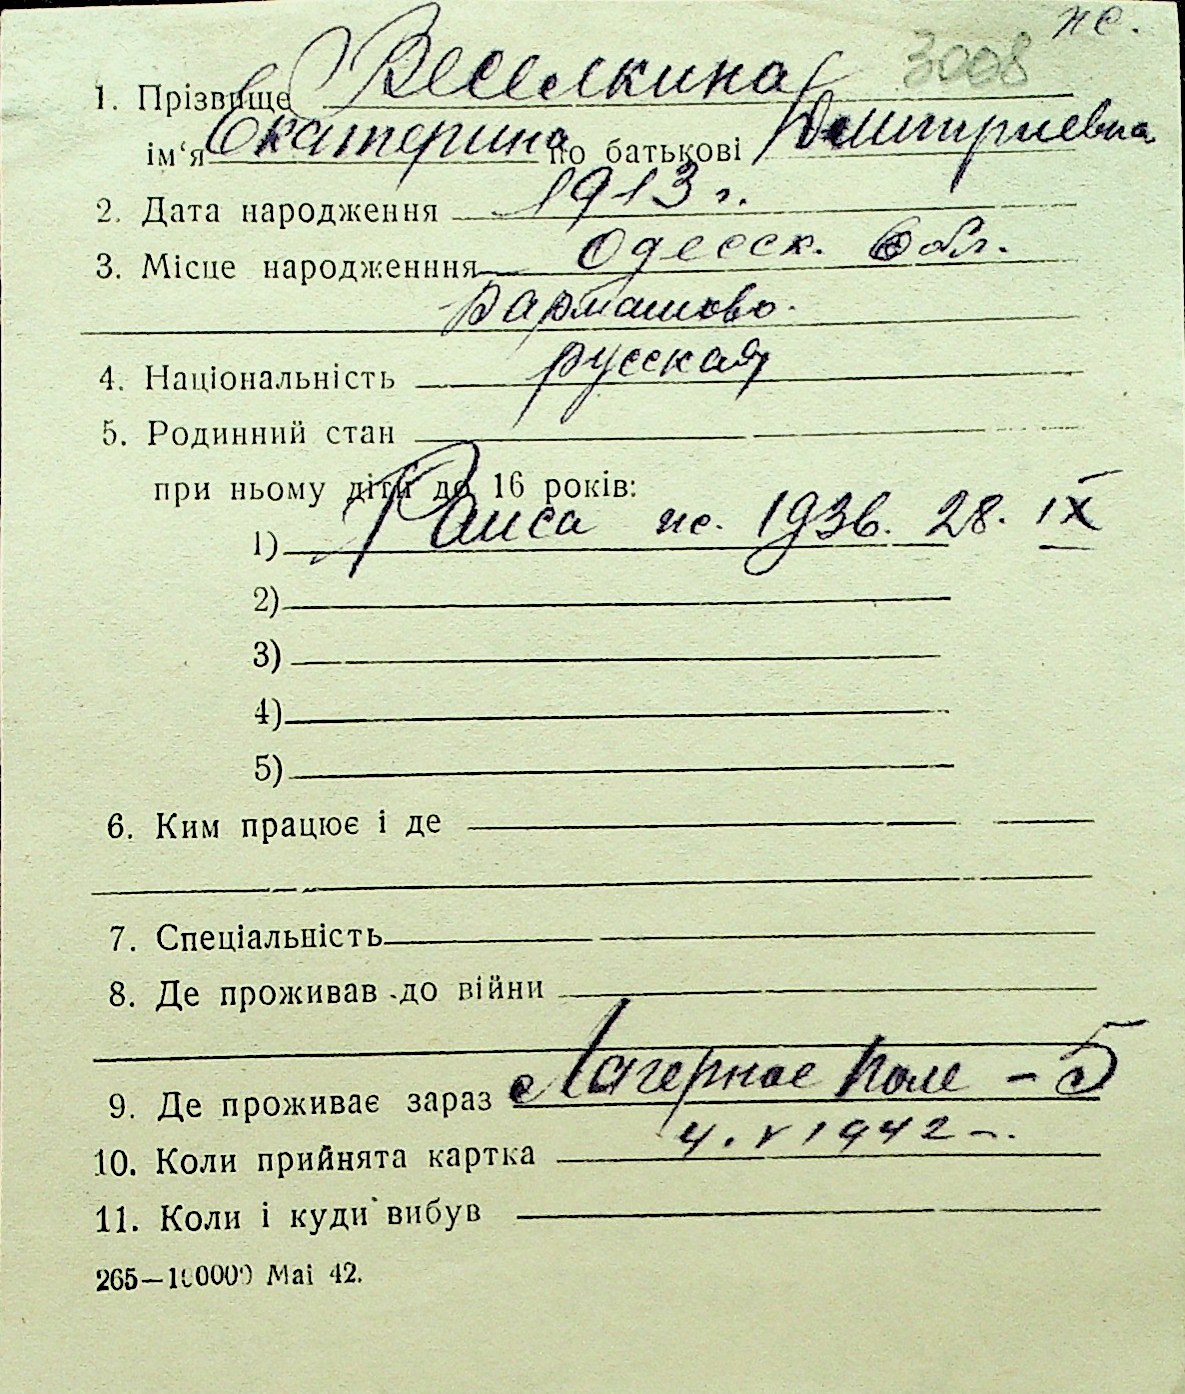 ж.
3008
1. Прізвище Веселкина
ім'я Екатерина по батькові Дмитриевна
2. Дата народження 1913 г.
3. Місце народженння Одесск. обл.
Варташово.
4. Національність русская
5. Родинний стан
при ньому діти до 16 років:
1) Раиса ж. 1936. 28. IX
2)
3)
4)
5)
6. Ким працює і де
7. Спеціальність
8. Де проживав до війни
9. Де проживає зараз Лагерное поле - 5
10. Коли прийнята картка 4. V 1942 -.
11. Коли і куди вибув
265—100000 Маі 42.